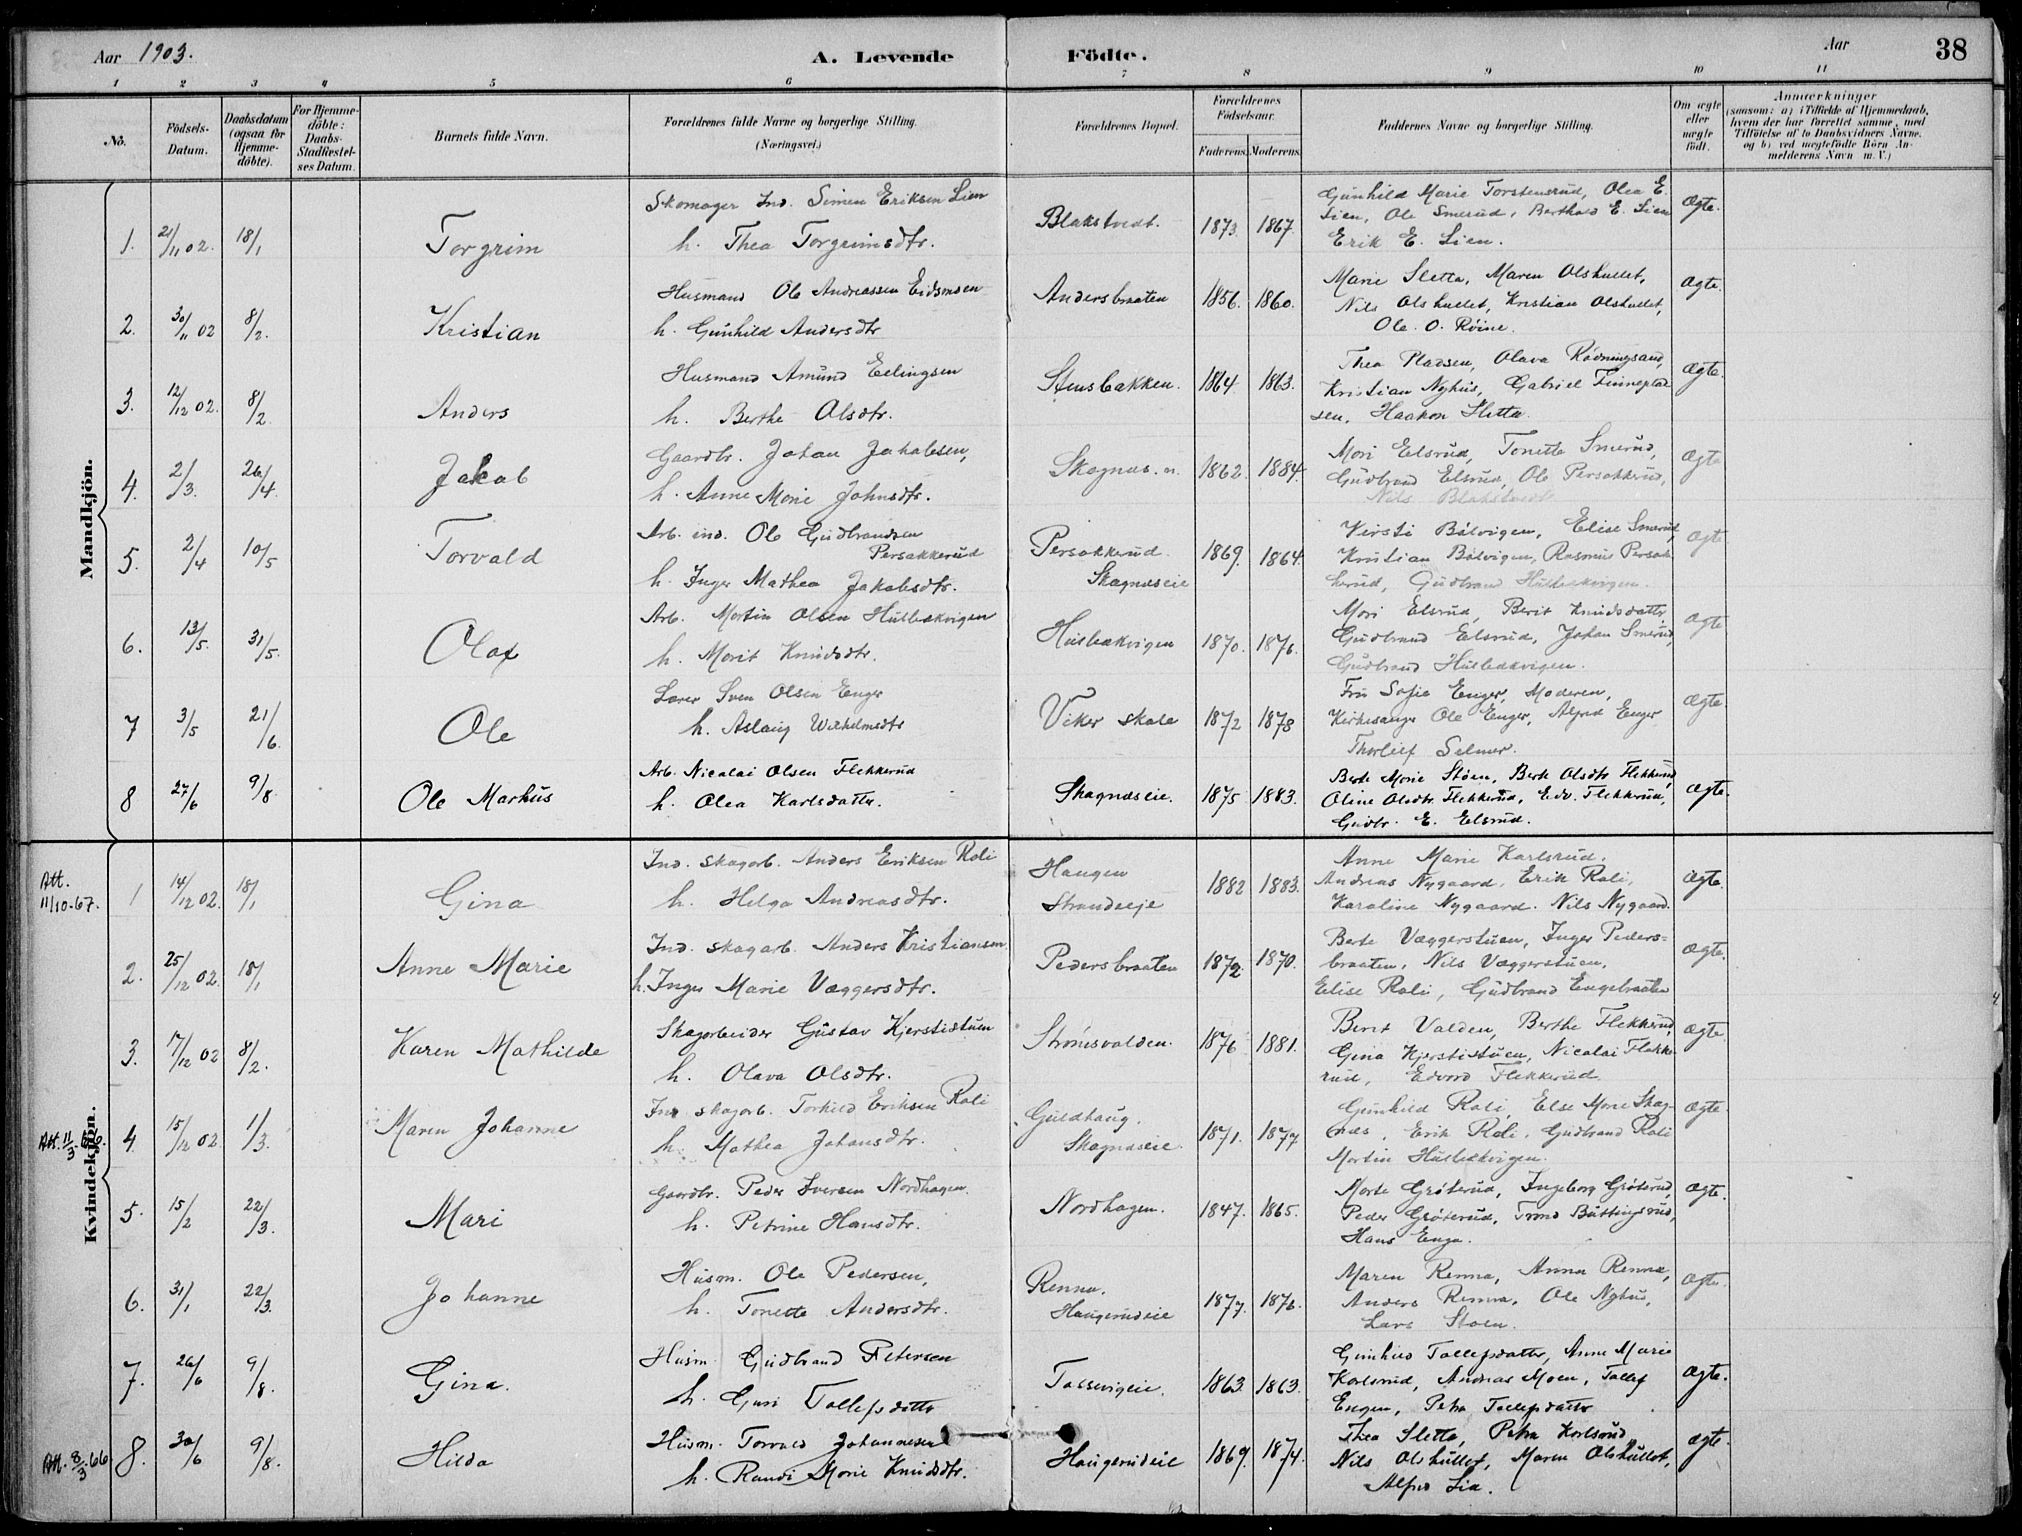 Aar 1903. A. Levende Födte. Aar 38
1 2 3 4 5 6 7 8 9 10 11
No.
Födsels-Datum.
Daabsdatum (ogsaa for Hjemme-döbte).
For Hjemme-döbte: Daabs-Stadfæstel-ses Datum.
Barnets fulde Navn.
Forældrenes fulde Navne og borgerlige Stilling.
(Næringsvei.)
Forældrenes Bopæl.
Forældrenes Födselsaar.
Faderens. Moderens.
Faddernes Navne og borgerlige Stilling.
Om ægte eller uægte födt.
Anmærkninger
(saasom: a) i Tilfælde af Hjemmedaab,
hvem der har forrettet samme, med
Tilföielse af to Daabsvidners Navne.
og b) ved uægtefödte Börn An-
melderens Navn m. V.)
Mandkjön.
Skomager Ind. Simen Eriksen Lien
Gunhild Marie Torstensrud, Olea E.
1. 21/11 02. 18/1 Torgrim h. Thea Torgrimsdtr. Blakstvedt. 1873. 1867. Lien, Ole Smerud, Berthold E. Lien Ægte.
Erik E. Lien.
Husmand Ole Andreassen Eidsmoen
Marie Sletta, Maren Olshullet,
2. 30/11 02 8/2. Kristian h. Gunhild Andersdtr Andersbraaten 1856. 1860. Nils Olshullet, Kristian Olshullet, Ægte.
Ole O. Röine.
Husmand Amund Erlingsen
Thea Pladsen, Olava Rövningsand,
3. 12/12 02. 8/2 Anders h. Berthe Olsdtr. Stensbakken. 1864. 1863. Kristian Nyhus, Gabriel Finneplad Ægte.
sen, Haakon Sletta.
Gaardbr. Johan Jakobsen,
Mari Elsrud, Tonette Smerud,
4. 2/3. 26/4. Jakob h. Anne Marie Johnsdtr. Skagnæs. 1862. 1884. Gudbrand Elsrud, Ole Persokkerud, Ægte
Nils Blakstvedt
Arb. ind. Ole Gudbrandsen Persokkerud
Kirsti Bölvigen, Elise Smerud,
5. 2/4 10/5 Torvald h. Inger Mathea Jakobsdtr. Persokkerud. Skagnæseie 1869. 1864. Kristian Bölvigen, Rasmus Persok Ægte
kerud, Gudbrand Hulbækvigen.
Arb. Martin Olsen Hulbækvigen
Mari Elsrud, Berit Knudsdatter,
6. 13/5. 31/5. Olaf h. Marit Knudsdtr. Hulbækvigen 1870. 1876. Gudbrand Elsrud, Johan Smerud, Ægte
Gudbrand Hulbækvigen.
Lærer Sven Olsen Enger
Fru Sofie Enger, Moderen,
7 3/5 21/6. Ole h. Aslaug Wilhelmsdtr Viker skole 1872 1878 Kirkesanger Ole Enger, Alfred Enger Ægte
Thorleif Selmer.
Arb. Nicolai Olsen Flekkerud
Berte Marie Stöen, Berte Olsdtr Flekkerud,
8 27/6 9/8. Ole Markus h. Olea Karlsdatter. Skagnæseie. 1875 1883. Oline Olsdtr. Flekkerud, Edv. Flekkerud, Ægte.
Gudbr. E. Elsrud.
Kvindekjön.
Ind. skogarb. Anders Eriksen Roli
Anne Marie Karlsrud.
Att. 11/10-67. 1 14/12 02. 18/1 Gina h. Helga Andreasdtr. Haugen Strandeeje 1882 1883. Andreas Nygaard, Erik Roli, Ægte.
Karoline Nygaard. Nils Nygaard.
Ind. skogarb. Anders Kristiansen
Berte Væggerstuen, Inger Peders=
2. 25/12 02. 18/1 Anne Marie h. Inger Marie Væggersdtr. Pedersbraaten 1872. 1870. braaten, Nils Væggerstuen, Ægte.
Elise Roli, Gudbrand Engebraaten
Skogarbeider Gustav Kjerstistuen
Berit Valden, Berthe Flekkerud,
3. 17/12 02 8/2. Karen Mathilde h. Olava Olsdtr. Strömsvolden. 1876 1881. Gina Kjerstistuen, Nicolai Flekke- Ægte
rud, Edvard Flekkerud.
Ind skogarb. Torkild Eriksen Roli
Gunhild Roli, Else Marie Skag-
Att. 11/3 66. 4. 15/12 02 1/3. Maren Johanne h. Mathea Johansdtr. Guldhaug. Skagnæseie. 1871. 1877 næs. Erik Roli. Gudbrand Roli Ægte
Martin Hulbækvigen.
Gaardbr. Peder Iversen Nordhagen.
Marte Gröterud, Ingeborg Gröterud,
5. 15/2 22/3. Mari h. Petrine Hansdtr. Nordhagen. 1847. 1865. Peder Gröterud, Trond Buttingsrud, Ægte.
Hans Enga.
Husm. Ole Pedersen,
Maren Renna, Anna Renna,
6. 31/1 22/3. Johanne h. Tonette Andersdtr. Renna. Haugerudeie 1877. 1876. Anders Renna, Ole Nyhus, Ægte.
Lars Stoen.
Husm. Gudbrand Petersen
Gunhild Tollefsdatter, Anne Marie
7. 26/6 9/8. Gina. h. Guri Tollefsdatter Tossevigeie. 1863. 1863. Karlsrud, Andreas Moen, Tollef Ægte.
Engen, Petra Tollefsdatter
Husm. Torvald Johannesen
Thea Sletta, Petra Karlsrud,
Att. 8/3.66 8. 30/6 9/8. Hilda h. Randi Marie Knudsdtr. Haugerudeie 1869. 1874. Nils Olshullet, Maren Olshullet, Ægte.
Alfred Lia.